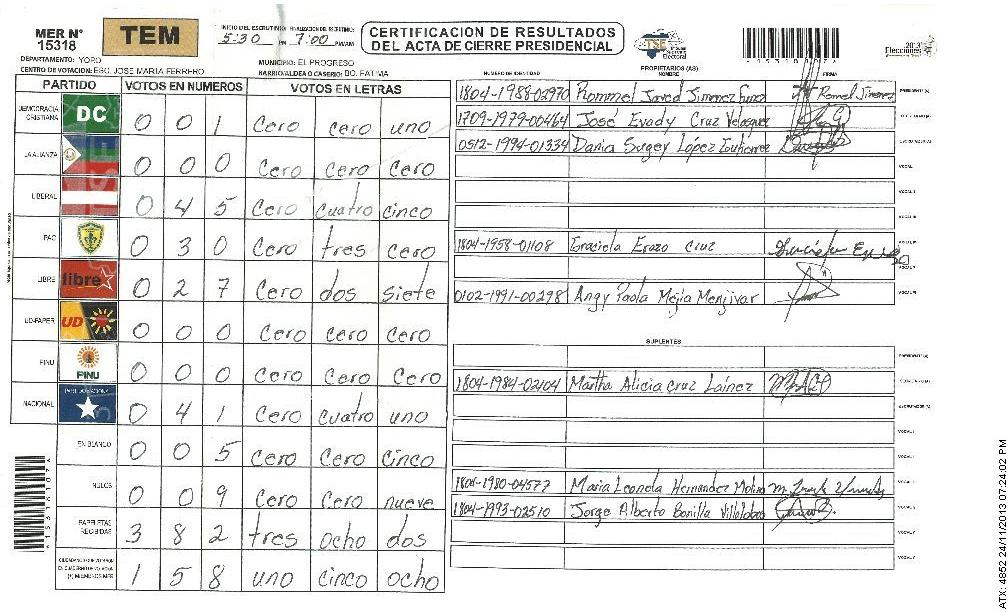 MER N° 15318
TEM
INICIO DEL ESCRUTINIO: 5:30 PM
FINALIZACION DEL ESCRUTINIO: 7:00 PM/AM
CERTIFICACION DE RESULTADOS
DEL ACTA DE CIERRE PRESIDENCIAL
TSE Tribunal Supremo Electoral
1531811076
Elecciones 2013
DEPARTAMENTO: YORO
MUNICIPIO: EL PROGRESO
CENTRO DE VOTACION: ESC. JOSE MARIA FERRERO
BARRIO/ALDEA O CASERIO: BO. FATIMA
PARTIDO VOTOS EN NUMEROS VOTOS EN LETRAS
DEMOCRACIA CRISTIANA DC 0 0 1 Cero cero uno
LA ALIANZA 0 0 0 Cero Cero Cero
LIBERAL 0 4 5 Cero cuatro cinco
PAC 0 3 0 Cero tres cero
LIBRE libre 0 2 7 Cero dos siete
UD-FAPER UD 0 0 0 Cero Cero Cero
PINU PINU 0 0 0 Cero Cero Cero
NACIONAL PARTIDO NACIONAL 0 4 1 Cero cuatro uno
EN BLANCO 0 0 5 Cero Cero Cinco
NULOS 0 0 9 Cero Cero nueve
PAPELETAS RECIBIDAS 3 8 2 tres ocho dos
CIUDADANOS QUE VOTARON EN CUADERNO DE VOTACION (+) MIEMBROS MER 1 5 8 uno cinco ocho
PROPIETARIOS (AS)
NUMERO DE IDENTIDAD NOMBRE FIRMA
1804-1988-02970 Rommel Javed Jimenez Funez Romel Jimenez PRESIDENTE (A)
1709-1979-00464 José Evady Cruz Velasquez SECRETARIO (A)
0512-1994-01334 Dania Surgey López Gutierrez ESCRUTADOR (A)
VOCAL I
VOCAL II
VOCAL III
1804-1958-01108 Graciela Erazo Cruz VOCAL IV
VOCAL V
0102-1991-00298 Angy Paola Mejia Menjivar VOCAL VI
SUPLENTES
PRESIDENTE (A)
1804-1984-02404 Martha Alicia Cruz Laínez SECRETARIO (A)
ESCRUTADOR (A)
VOCAL I
VOCAL II
1804-1980-04577 Maria Leonela Hernandez Molina
1804-1993-02510 Jorge Alberto Bonilla Villalobos
VOCAL V
ATX: 4852 24/11/2013 07:24:02 PM